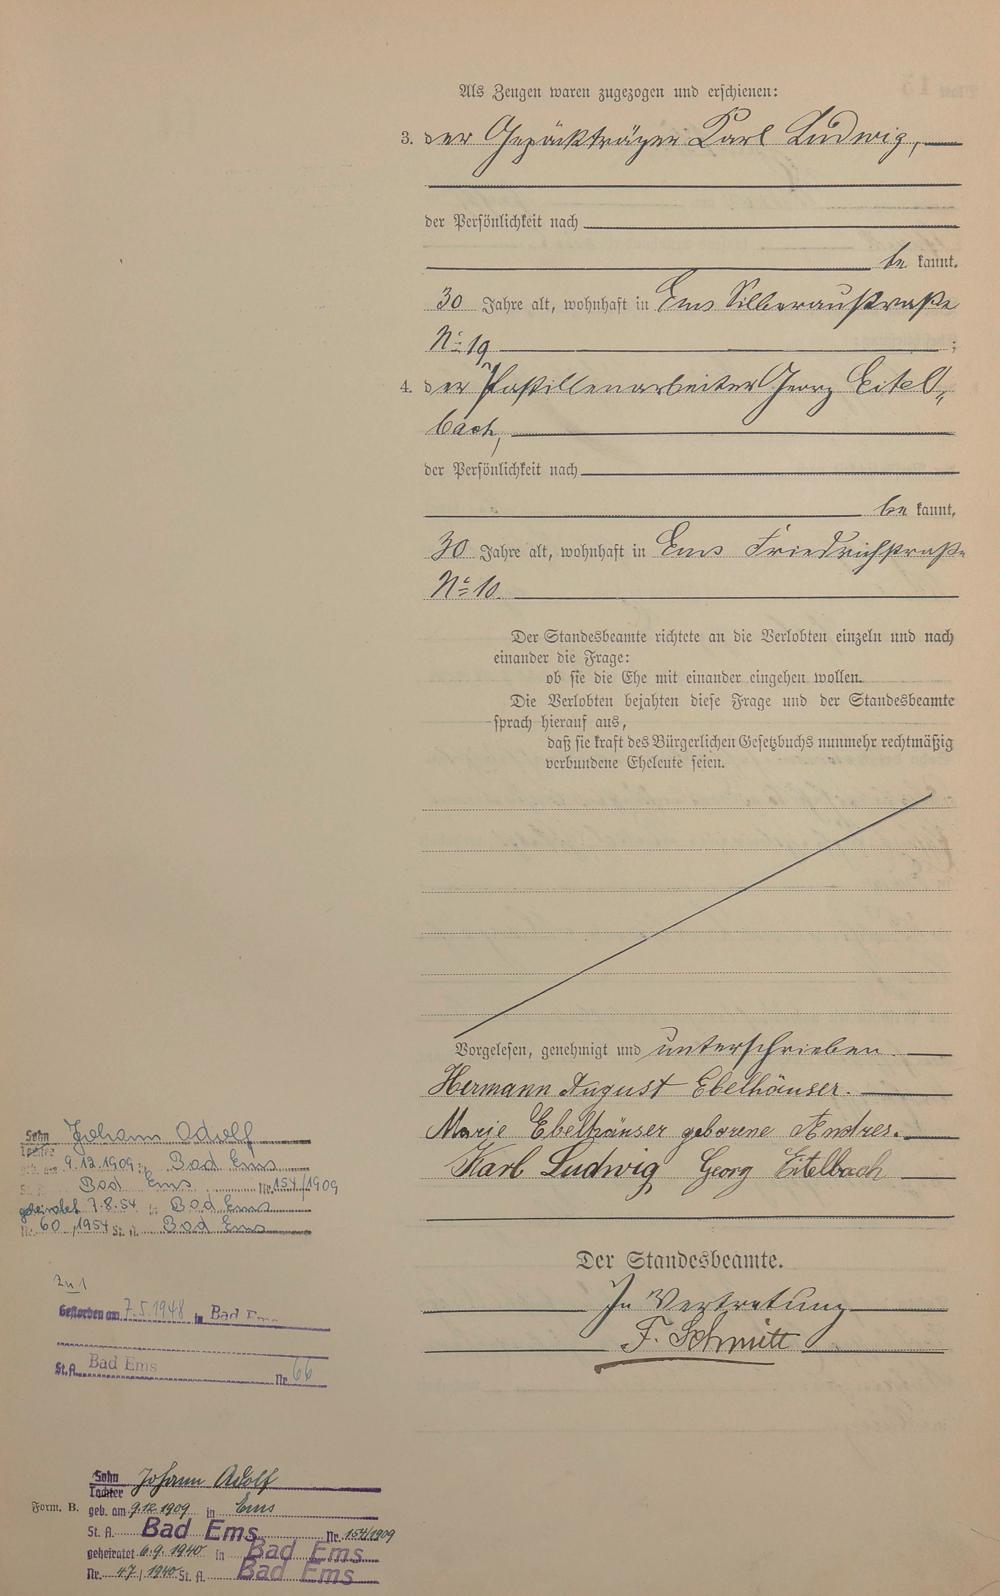 Als Zeugen waren zugezogen und erschienen:
3. der Gepäckträger Karl Ludwig,
der Persönlichkeit nach
be kannt,
30 Jahre alt, wohnhaft in Ems Silberaustraße
No 19 ;
4. der Pastillenarbeiter Georg Eitel„
bach,
der Persönlichkeit nach
be kannt,
30 Jahre alt, wohnhaft in Ems Friedrichstraße
No 10.
Der Standesbeamte richtete an die Verlobten einzeln und nach
einander die Frage:
ob sie die Ehe mit einander eingehen wollen.
Die Verlobten bejahten diese Frage und der Standesbeamte
sprach hierauf aus,
daß sie kraft des Bürgerlichen Gesetzbuchs nunmehr rechtmäßig
verbundene Eheleute seien.
Vorgelesen, genehmigt und unterschrieben.
Hermann August Ebelhäuser.
Marie Ebelhäuser geborene Andres.
Karl Ludwig Georg Eitelbach
Der Standesbeamte.
In Vertretung
F. Schmitt
Sohn Johann Adolf
Tochter
geb. am 9.12.1909 in Bad Ems
St. A. Bad Ems Nr. 154/1909
geheiratet 7.8.54 in Bad Ems
Nr. 60, 1954 St. A. Bad Ems
Zu 1
Gestorben am 7.5.1948 in Bad Ems
St. A. Bad Ems Nr. 66
Sohn Johann Adolf
Tochter
Form. B. geb. am 9.12.1909 in Ems
St. A. Bad Ems Nr. 154/1909
geheiratet 6.9.1940 in Bad Ems
Nr. 47 / 1940 St. A. Bad Ems